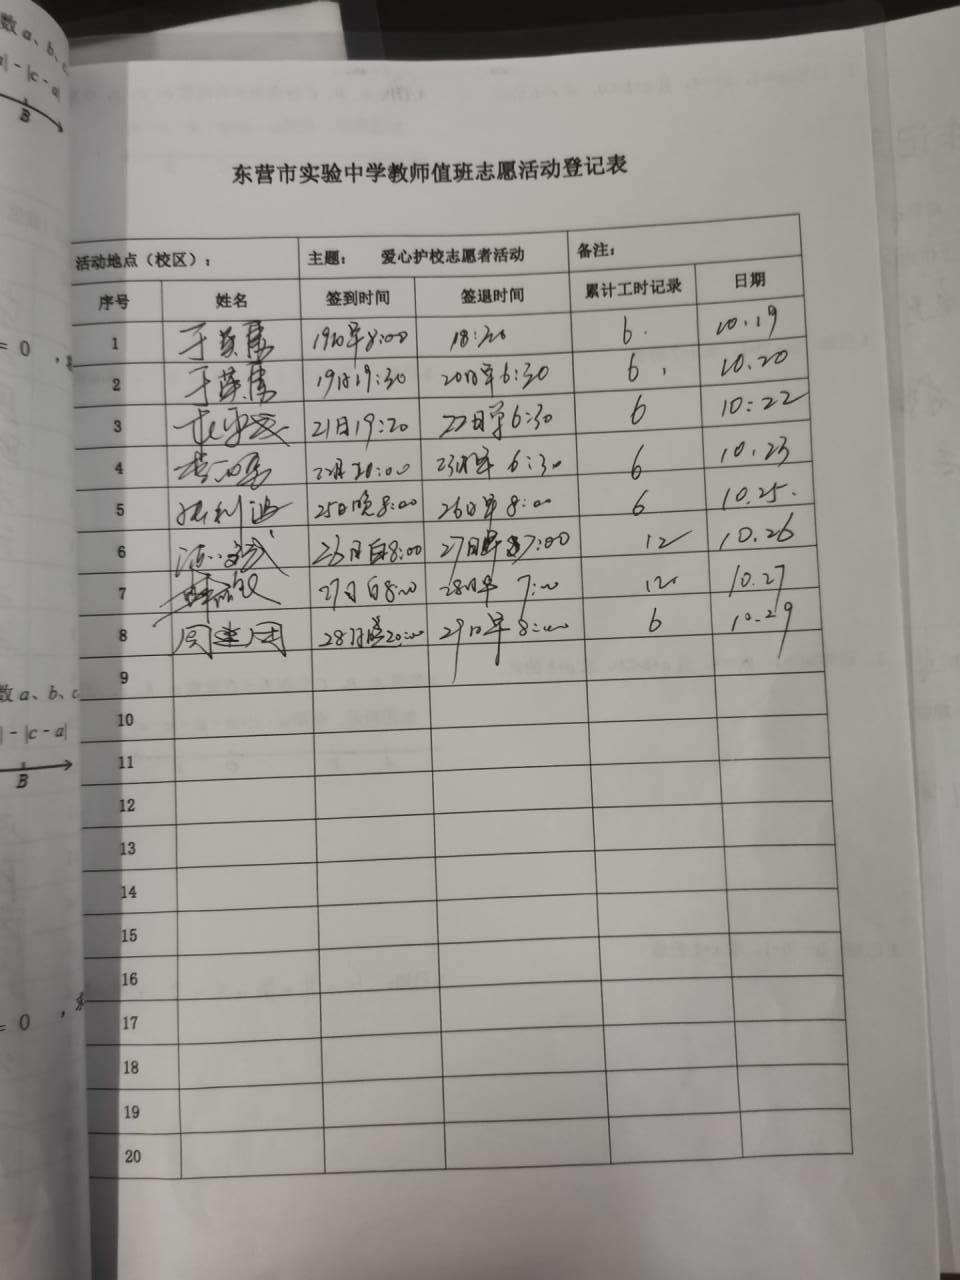 数 a、b、c
a| - |c - a|
B
= 0 ，
东营市实验中学教师值班志愿活动登记表
活动地点（校区）： 主题： 爱心护校志愿者活动 备注：
序号 姓名 签到时间 签退时间 累计工时记录 日期
1 19日早8:00 18:30 6. 10.19
2 19日19:30 20日早6:30 6. 10.20
3 21日19:20 22日早6:30 6 10:22
4 22日20:00 23日早 6:30 6 10.23
5 25日晚8:00 26日早 8:00 6 10.25.
6 26日白8:00 27日早7:00 12 10.26
7 27日白8:00 28日早 7:00 12 10.27
8 周建国 28日晚20:00 29日早8:00 6 10.29
9
10
11
12
13
14
15
16
17
18
19
20
数 a、b、c
| - |c - a|
B
= 0 ，